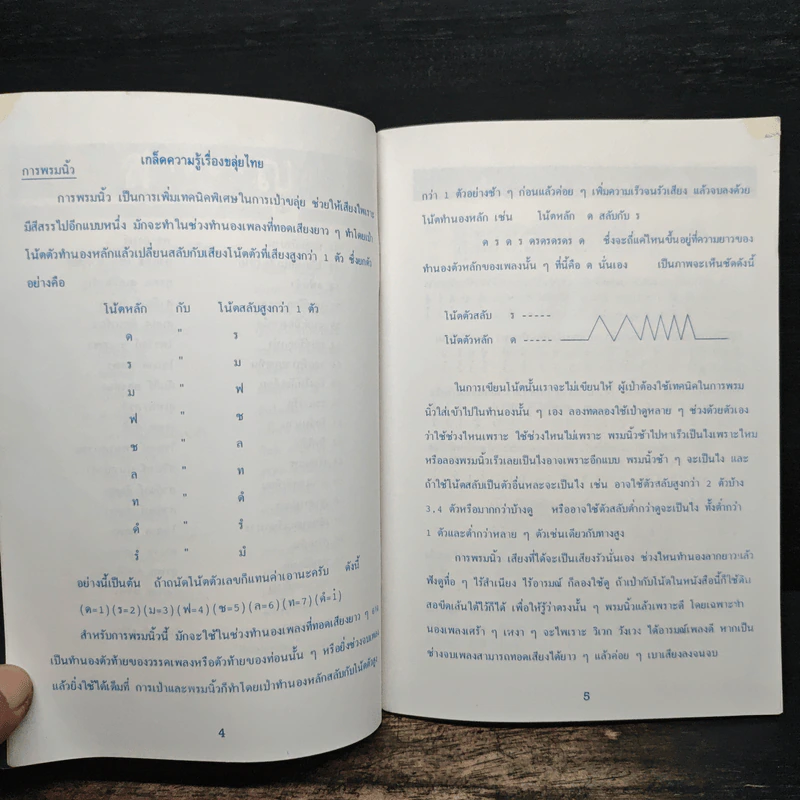 เกล็ดความรู้เรื่องขลุ่ยไทย
การพรมนิ้ว
การพรมนิ้ว เป็นการเพิ่มเทคนิคพิเศษในการเป่าขลุ่ย ช่วยให้เสียงไพเราะ
มีสีสรรไปอีกแบบหนึ่ง มักจะทำในช่วงทำนองเพลงที่ทอดเสียงยาว ๆ ทำโดยเป่า
โน้ตตัวทำนองหลักแล้วเปลี่ยนสลับกับเสียงโน้ตตัวที่เสียงสูงกว่า 1 ตัว ซึ่งยกตัว
อย่างคือ
โน้ตหลัก กับ โน้ตสลับสูงกว่า 1 ตัว
ด " ร
ร " ม
ม " ฟ
ฟ " ซ
ซ " ล
ล " ท
ท " ดํ
ดํ " รํ
รํ " มํ
อย่างนี้เป็นต้น ถ้าถนัดโน้ตตัวเลขก็แทนค่าเอานะครับ ดังนี้
(ด=1)(ร=2)(ม=3)(ฟ=4)(ซ=5)(ล=6)(ท=7)(ดํ=i)
สำหรับการพรมนิ้วนี้ มักจะใช้ในช่วงทำนองเพลงที่ทอดเสียงยาว ๆ
เป็นทำนองตัวท้ายของวรรคเพลงหรือตัวท้ายของท่อนนั้น ๆ หรือยิ่งช่วงจบเพลง
แล้วยิ่งใช้ได้เต็มที่ การเป่าและพรมนิ้วก็ทำโดยเป่าทำนองหลักสลับกับโน้ตตัวสูง
4
กว่า 1 ตัวอย่างช้า ๆ ก่อนแล้วค่อย ๆ เพิ่มความเร็วจนรัวเสียง แล้วจบลงด้วย
โน้ตทำนองหลัก เช่น โน้ตหลัก ด สลับกับ ร
ด ร ด ร ดรดรดรดร ด ซึ่งจะถี่แค่ไหนขึ้นอยู่ที่ความยาวของ
ทำนองตัวหลักของเพลงนั้น ๆ ที่นี้คือ ด นั่นเอง เป็นภาพจะเห็นชัดดังนี้
โน้ตตัวสลับ ร -----
โน้ตตัวหลัก ด -----
ในการเขียนโน้ตนั้นเราจะไม่เขียนให้ ผู้เป่าต้องใช้เทคนิคในการพรม
นิ้วใส่เข้าไปในทำนองนั้น ๆ เอง ลองทดลองใช้เป่าดูหลาย ๆ ช่วงด้วยตัวเอง
ว่าใช้ช่วงไหนเพราะ ใช้ช่วงไหนไม่เพราะ พรมนิ้วช้าไปหาเร็วเป็นไงเพราะไหม
หรือลองพรมนิ้วเร็วเลยเป็นไงอาจเพราะอีกแบบ พรมนิ้วช้า ๆ จะเป็นไง และ
ถ้าใช้โน้ตสลับเป็นตัวอื่นหละจะเป็นไง เช่น อาจใช้ตัวสลับสูงกว่า 2 ตัวบ้าง
3,4 ตัวหรือมากกว่าบ้างดู หรืออาจใช้ตัวสลับต่ำกว่าดูจะเป็นไง ทั้งต่ำกว่า
1 ตัวและต่ำกว่าหลาย ๆ ตัวเช่นเดียวกับทางสูง
การพรมนิ้ว เสียงที่ได้จะเป็นเสียงรัวนั่นเอง ช่วงไหนทำนองลากยาวแล้ว
ฟังดูทื่อ ๆ ไร้สำเนียง ไร้อารมณ์ ก็ลองใช้ดู ถ้าเป่ากับโน้ตในหนังสือนี้ก็ใช้ดิน
สอขีดเส้นใต้ไว้ก็ได้ เพื่อให้รู้ว่าตรงนั้น ๆ พรมนิ้วแล้วเพราะดี โดยเฉพาะทำ
นองเพลงเศร้า ๆ เหงา ๆ จะไพเราะ วิเวก วังเวง ได้อารมณ์เพลงดี หากเป็น
ช่วงจบเพลงสามารถทอดเสียงได้ยาว ๆ แล้วค่อย ๆ เบาเสียงลงจนจบ
5